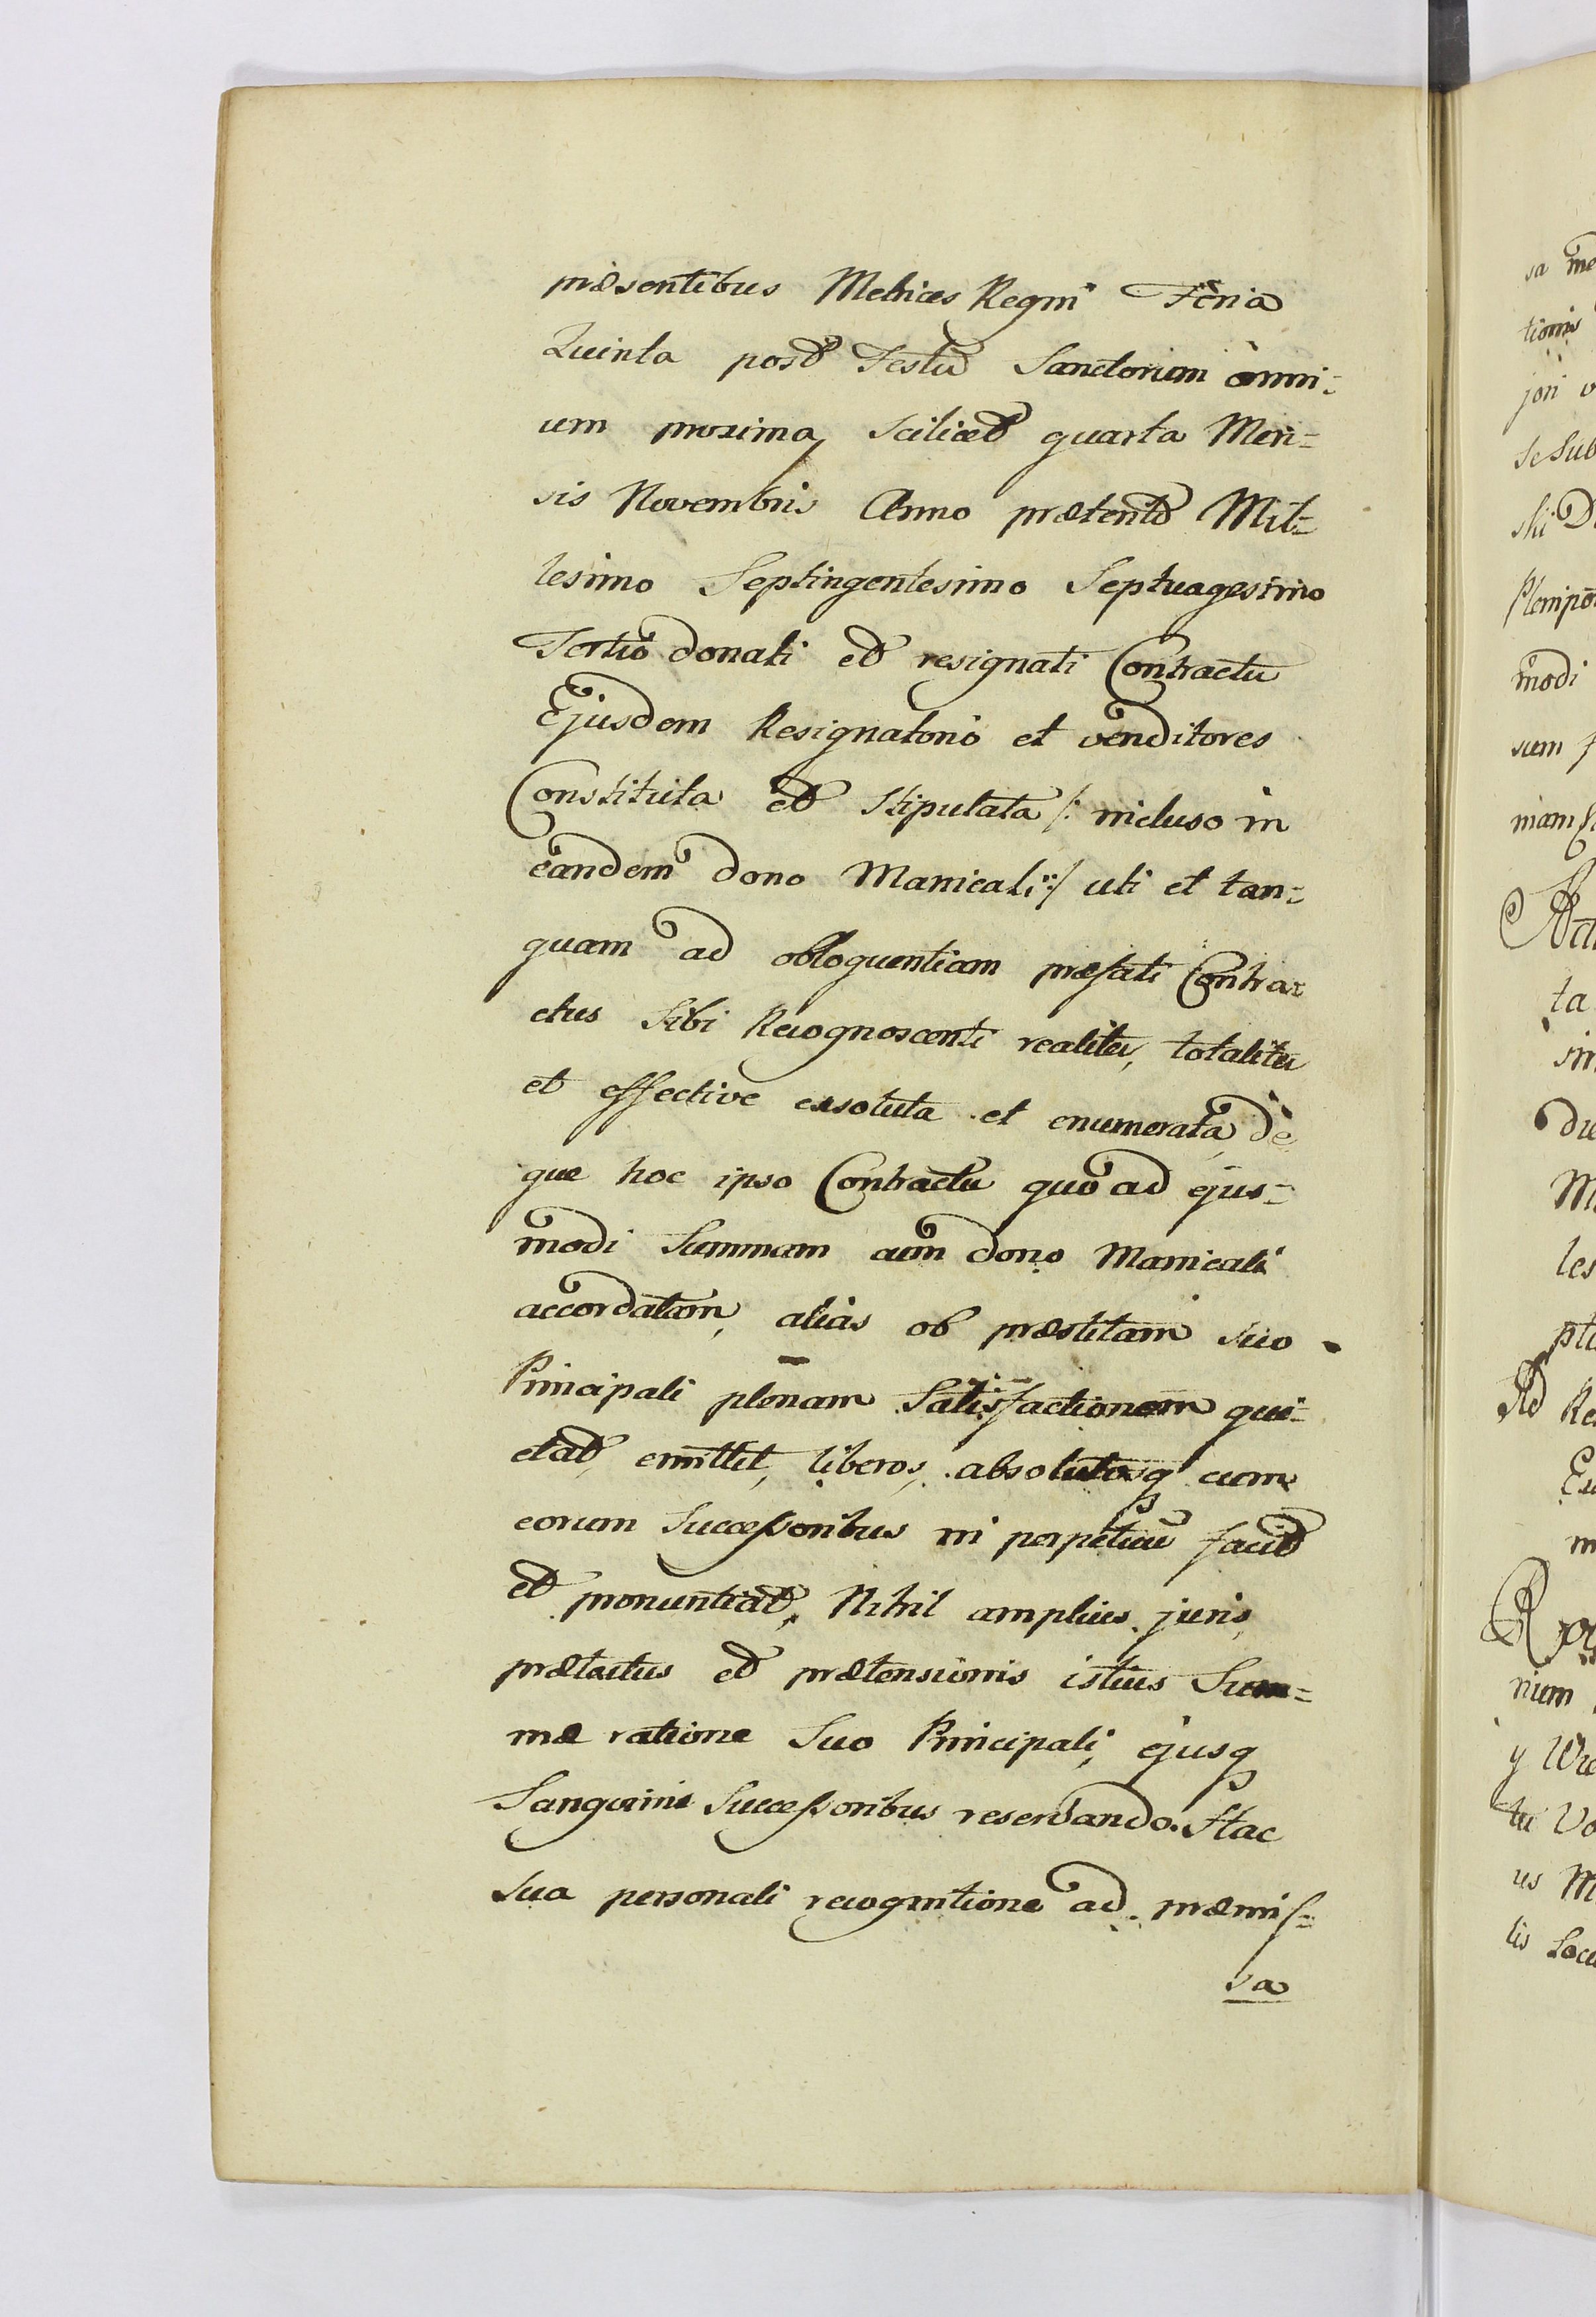 præsentibus Metrices Regni Feria
Quinta post Festū Sanctorum omni=
um proxima, scilicet quarta Men=
sis Novembris Anno præterito Mil=
lesimo Septingentesimo Septuagesimo
Tertio donati et resignati Contractu
Ejusdem Resignatorio et venditores
Constituta et stipulata /: incluso in
eandem dono Manicali :/ uti et tan=
quam ad obloquentiam præfati Contra=
ctus Sibi Recognoscenti realiter, totaliter
et effective exsoluta et enumerata, de
que hoc ipso Contractu quo ad ejus=
modi Summam cum dono Manicali
accordatam, alias ob præstitam suo
Principali plenam Satisfactionem qui=
etat, emittit, liberos, absolutosq cum
eorum Successoribus in perpetuū facit
et pronuntiat, Nihil amplius juris,
prætactus et prætensionis istius Sum=
mæ ratione Suo Principali, ejusq
Sanguinis Successoribus reservando. Hac
sua personali recognitione ad præmis=
sa
sa
tionis
jori
se Sub
ski
Plenipo
modi
sum
niam
ta
du
les
Ad
nium
us
lis Loci